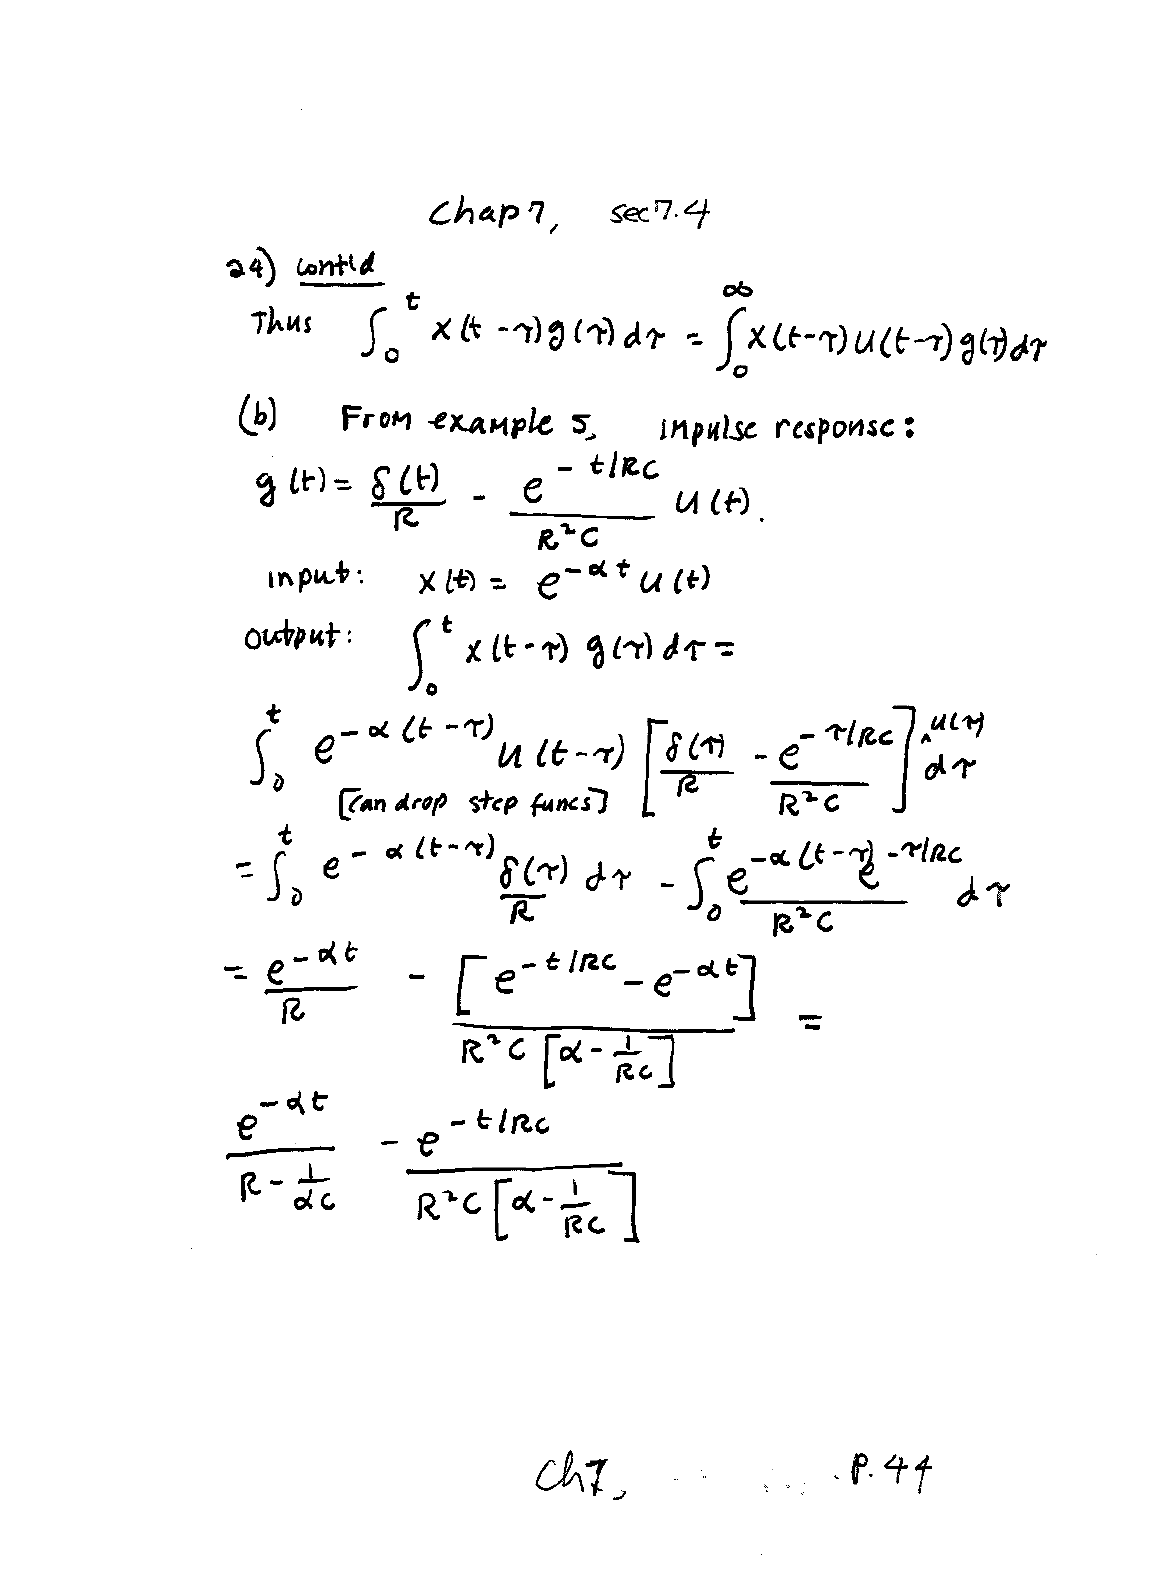 Chap 7, sec 7.4
24) cont'd
Thus ∫₀^t x(t-τ)g(τ)dτ = ∫₀^∞ x(t-τ)u(t-τ)g(τ)dτ
(b) From example 5, impulse response:
g(t) = δ(t)/R - e^(-t/RC)/(R²C) u(t).
input: x(t) = e^(-αt) u(t)
output: ∫₀^t x(t-τ) g(τ) dτ =
∫₀^t e^(-α(t-τ)) u(t-τ) [δ(τ)/R - e^(-τ/RC)/(R²C)] ^u(τ) dτ
[Can drop step funcs]
= ∫₀^t e^(-α(t-τ)) δ(τ)/R dτ - ∫₀^t e^(-α(t-τ)) e^(-τ/RC)/(R²C) dτ
= e^(-αt)/R - [e^(-t/RC) - e^(-αt)]/(R²C[α - 1/RC]) =
e^(-αt)/(R - 1/(αC)) - e^(-t/RC)/(R²C[α - 1/RC])
Ch 7, p. 44